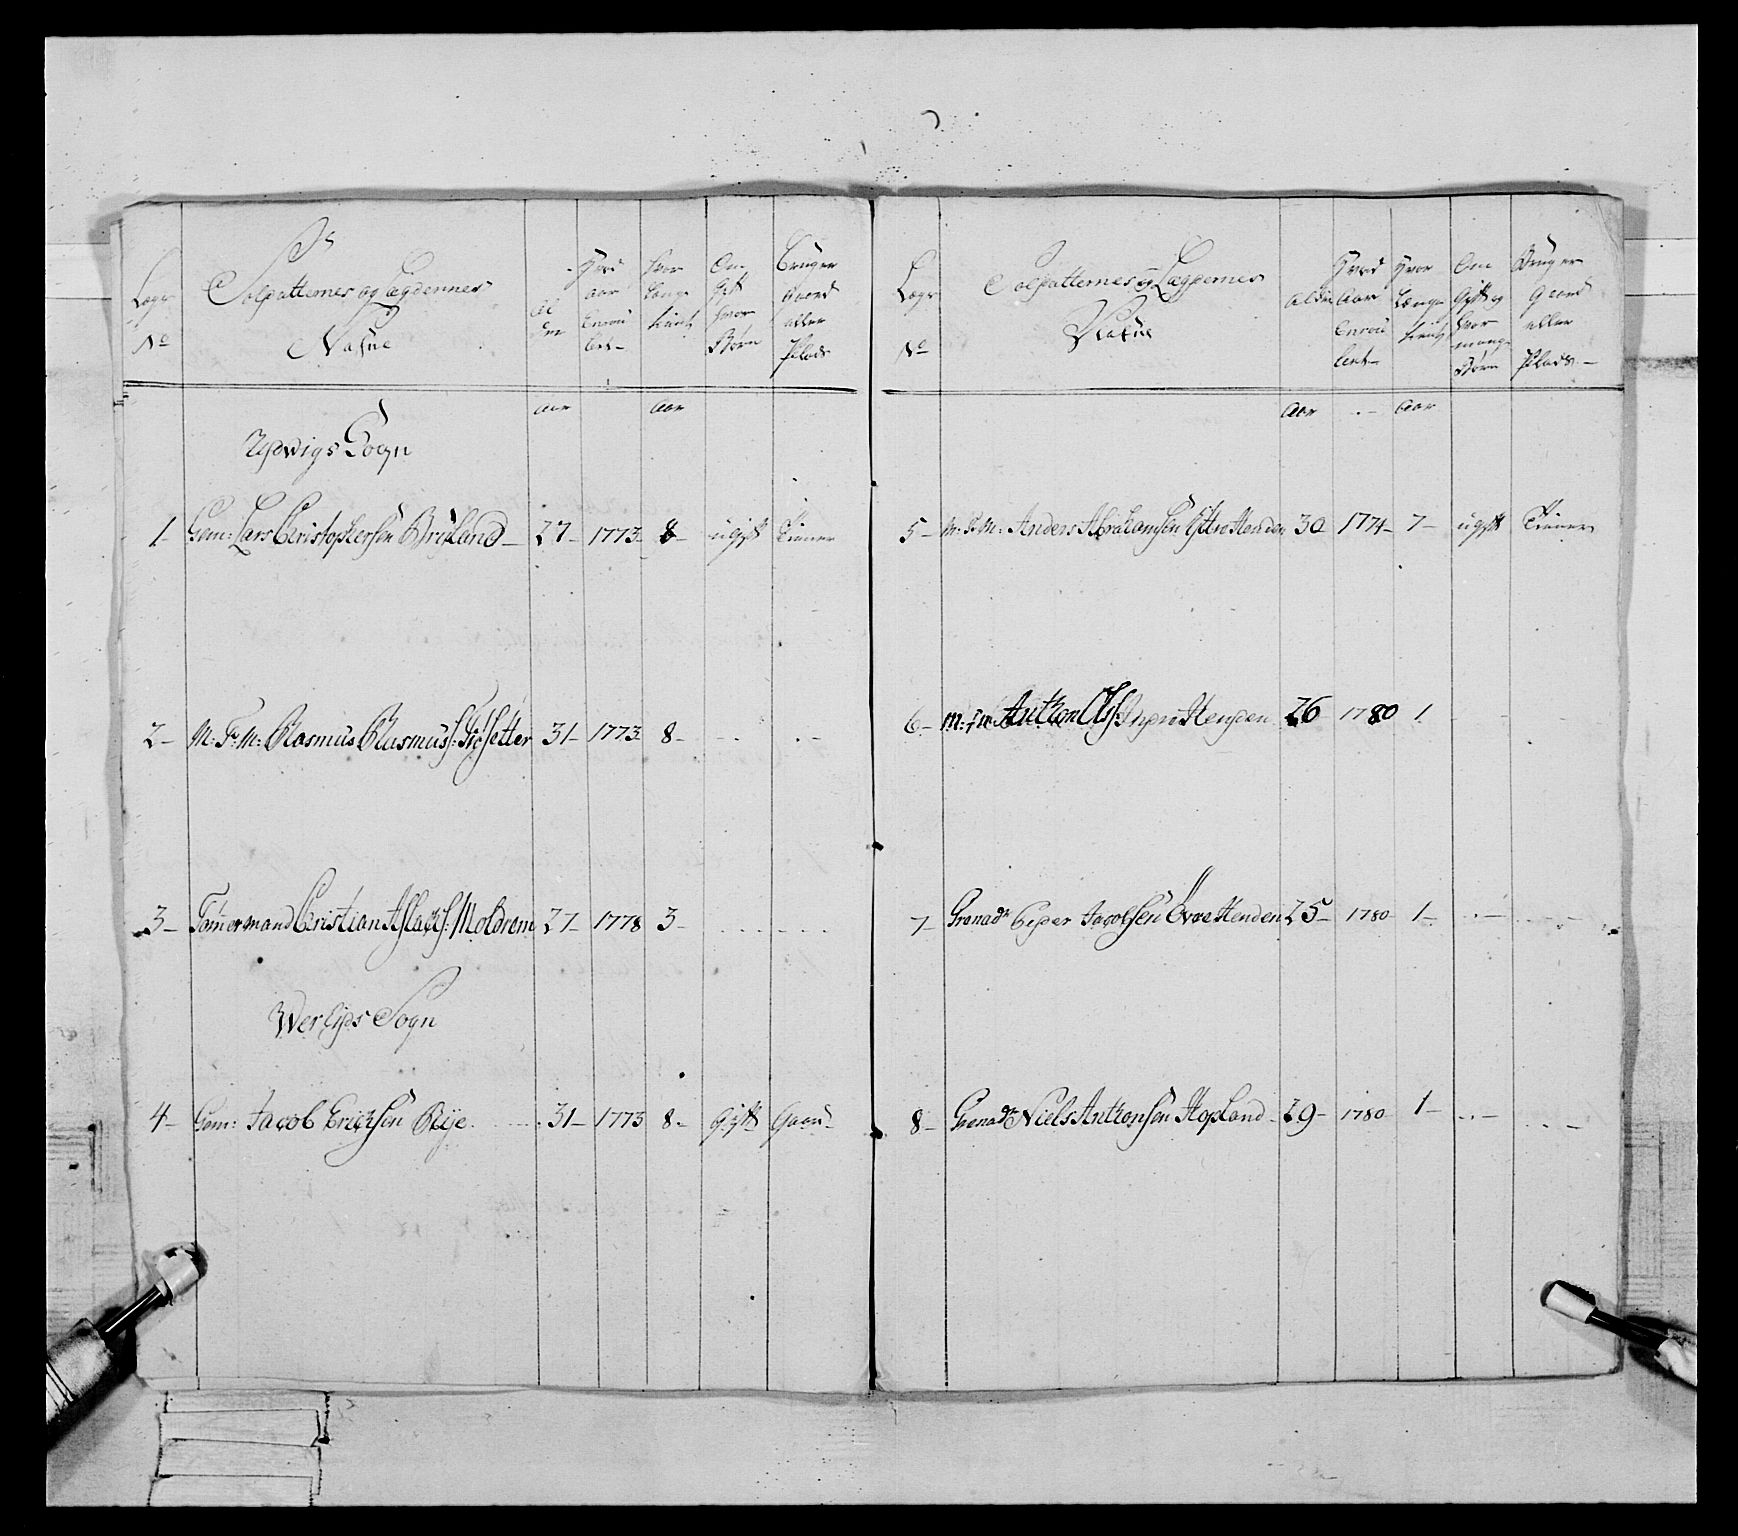 Lægs No
Soldatternes og Lægdernes Nafne
Al der
Hvad aar Enroul lert
hvor længe tient
Om Gift hvor Børn
Bruger Gaard eller Plads
aar aar
Udwigs Sogn
1 Gem: Lars Christophersen Brÿland 27 1773 8 ugift Tiener
2 M: F: M: Rasmus Rasmuss: Setter 31 1773 8
3 Tømermand Christian Aslachs: Moldrem 27 1778 3
Werlids Sogn
4 Gem: Jacob Erichsen Rÿe 31 1773 8 Gift Gaard
Lægs No
Soldatternes og Lægdernes Nafne
Alder
Hvad Aar Enroul lert
Hvor Længe tient
Om Gift og hvor mange Børn
Bruger Gaard eller Plads
Aar Aar
5 M: F: M: Anders Abrahamsen Ÿttre Henden 30 1774 7 ugift Tiener
6 M: F: M: Anthon Ols: Indre Henden 26 1780 1
7 Grenadr Peder Jacobsen Øvre Henden 25 1780 1
8 Grenadr Niels Anthonsen Hopland 29 1780 1